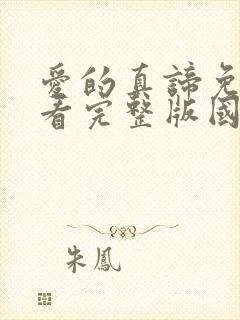 愛的真諦免
看完整版國
朱鳳